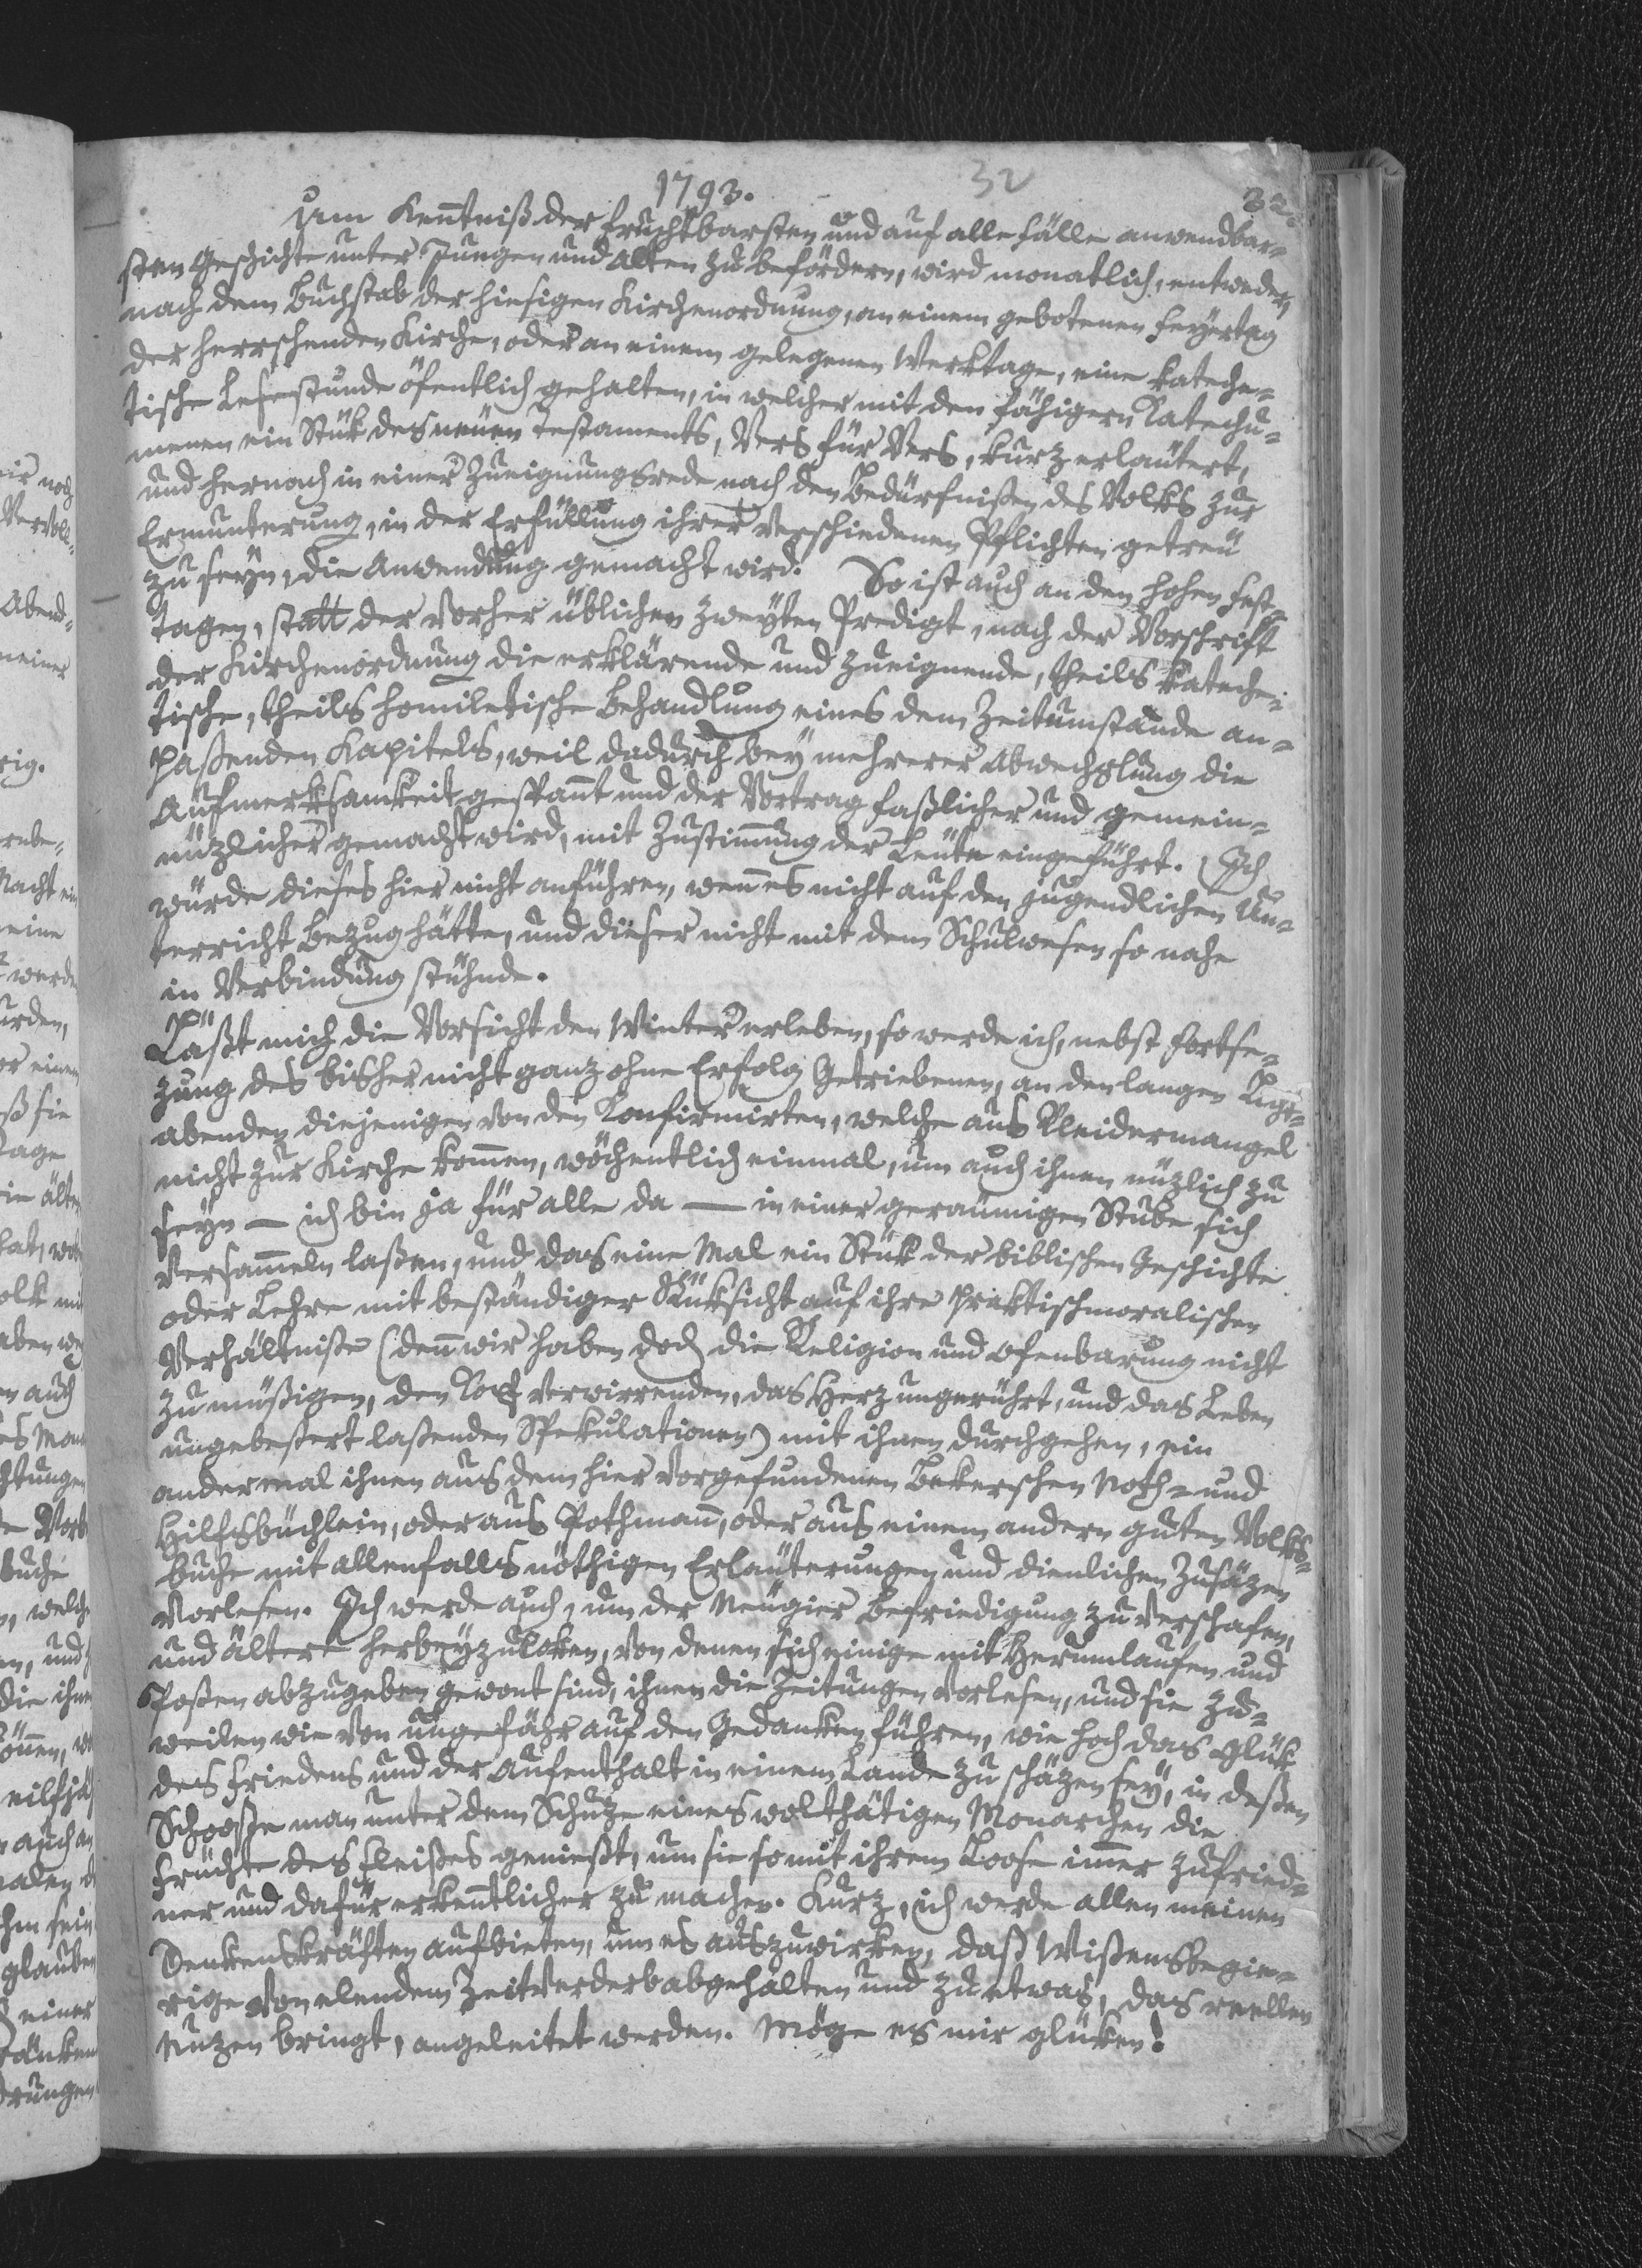 1793.
32
32.
Um Kenntniß der fruchtbarsten und auf alle Fälle anwendbar-
sten Geschichte unter Jungen und Alten zu befördern, wird monatlich, entweder,
nach dem Buchstab der hiesigen Kirchenordnung, an einem gebotenen Feyertag
der herrschenden Kirche, oder an einem gelegenen Werktage, eine kateche-
tische Lesestunde öfentlich gehalten, in welcher mit den fähigern Katechu-
menen ein Stük des neuen Testaments, Vers für Vers, kurz erläutert,
und hernach in einer Zueignungsrede nach den Bedürfnißen des Volks zur
Ermunterung, in der Erfüllung ihrer verschiedenen Pflichten getreu
zu seyn, die Anwendung gemacht wird. So ist auch an den hohen Fest-
tagen, statt der vorher üblichen zweyten Predigt, nach der Vorschrift
der Kirchenordnung die erklärende und zueignende, theils kateche-
tische, theils homiletische Behandlung eines dem Zeitumstande an-
paßenden Kapitels, weil dadurch bey mehrerer Abwechslung die
Aufmerksamkeit gespannt und der Vortrag faßlicher und gemein-
nüzlicher gemacht wird, mit Zustimmung der Leute eingeführt. (Ich
würde dieses hier nicht anführen, wenn es nicht auf den jugendlichen Un-
terricht Bezug hätte, und dieser nicht mit dem Schulwesen so nahe
in Verbindung stühnde.
Läßt mich die Vorsicht den Winter erleben, so werde ich, nebst Fortse-
zung des bisher nicht ganz ohne Erfolg Getriebenen, an den langen Licht-
abenden diejenigen von den Konfirmirten, welche aus Kleidermangel
nicht zur Kirche kommen, wöchentlich einmal, um auch ihnen nüzlich zu
seyn — ich bin ja für alle da — in einer geraümigen Stube sich
versammeln laßen, und das eine Mal ein Stük der biblischen Geschichte
oder Lehre mit beständiger Rüksicht auf ihre praktischmoralischen
Verhältniße (denn wir haben doch die Religion und Ofenbarung nicht
zu müßigen, den Kopf verwirrenden, das Herz ungerührt, und das Leben
ungebeßert laßenden Spekulationen) mit ihnen durchgehen, ein
andermal ihnen aus dem hier vorgefundenen Bekerschen Noth- und
Hilfsbüchlein, oder aus Pothmann, oder aus einem andern guten Volks-
buche mit allenfalls nöthigen Erläuterungen und dienlichen Zusäzen
vorlesen. Ich werde auch, um der Neugier Befriedigung zu verschafen,
und ältere herbeyzuloken, von denen sich einige mit Herumlaufen und
Poßen abzugeben gewont sind, ihnen die Zeitungen vorlesen, und sie zu-
weilen wie von ungefähr auf den Gedanken führen, wie hoch das Glük
des Friedens und der Aufenthalt in einem Lande zu schäzen sey, in deßen
Schooße man unter dem Schuze eines wolthätigen Monarchen die
Früchte des Fleißes genießt, um sie somit ihrem Loose immer zufried-
ner und dafür erkenntlicher zu machen. Kurz, ich werde allen meinen
Denkenskräften aufbieten, um es auszuwirken, daß Wißensbegie-
rige von elendem Zeitverderb abgehalten und zu etwas, das reellen
Nuzen bringt, angeleitet werden. Möge es mir glüken!